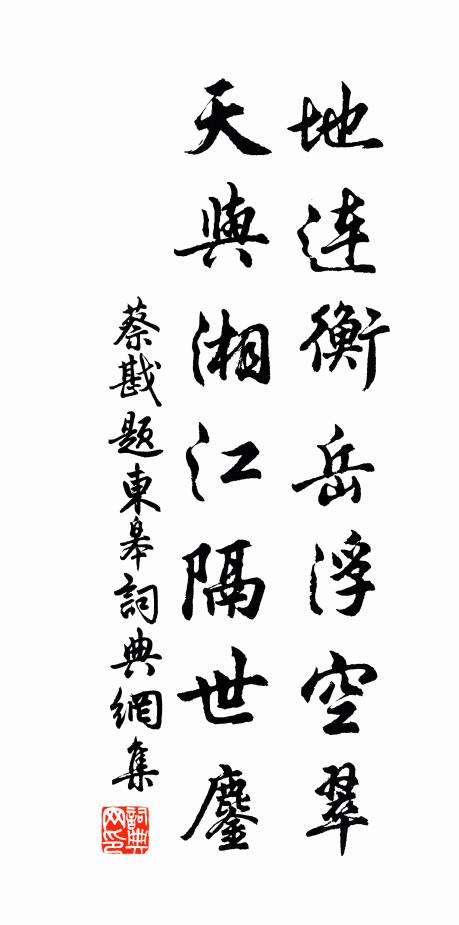 地連衡岳浮空翠
天與湘江隔世鏖
蔡戡題東皋詞典網集
詞典网印